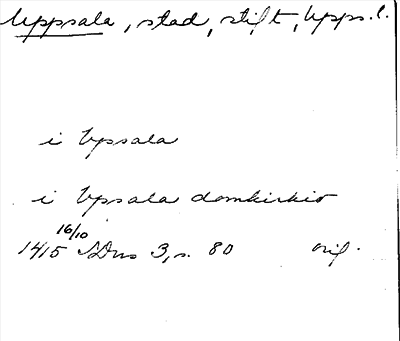 Uppsala, stad, stift, Upps. l.
i Upsala
i Upsala domkirkio
16/10
1415 SDns 3, s. 80 orig.